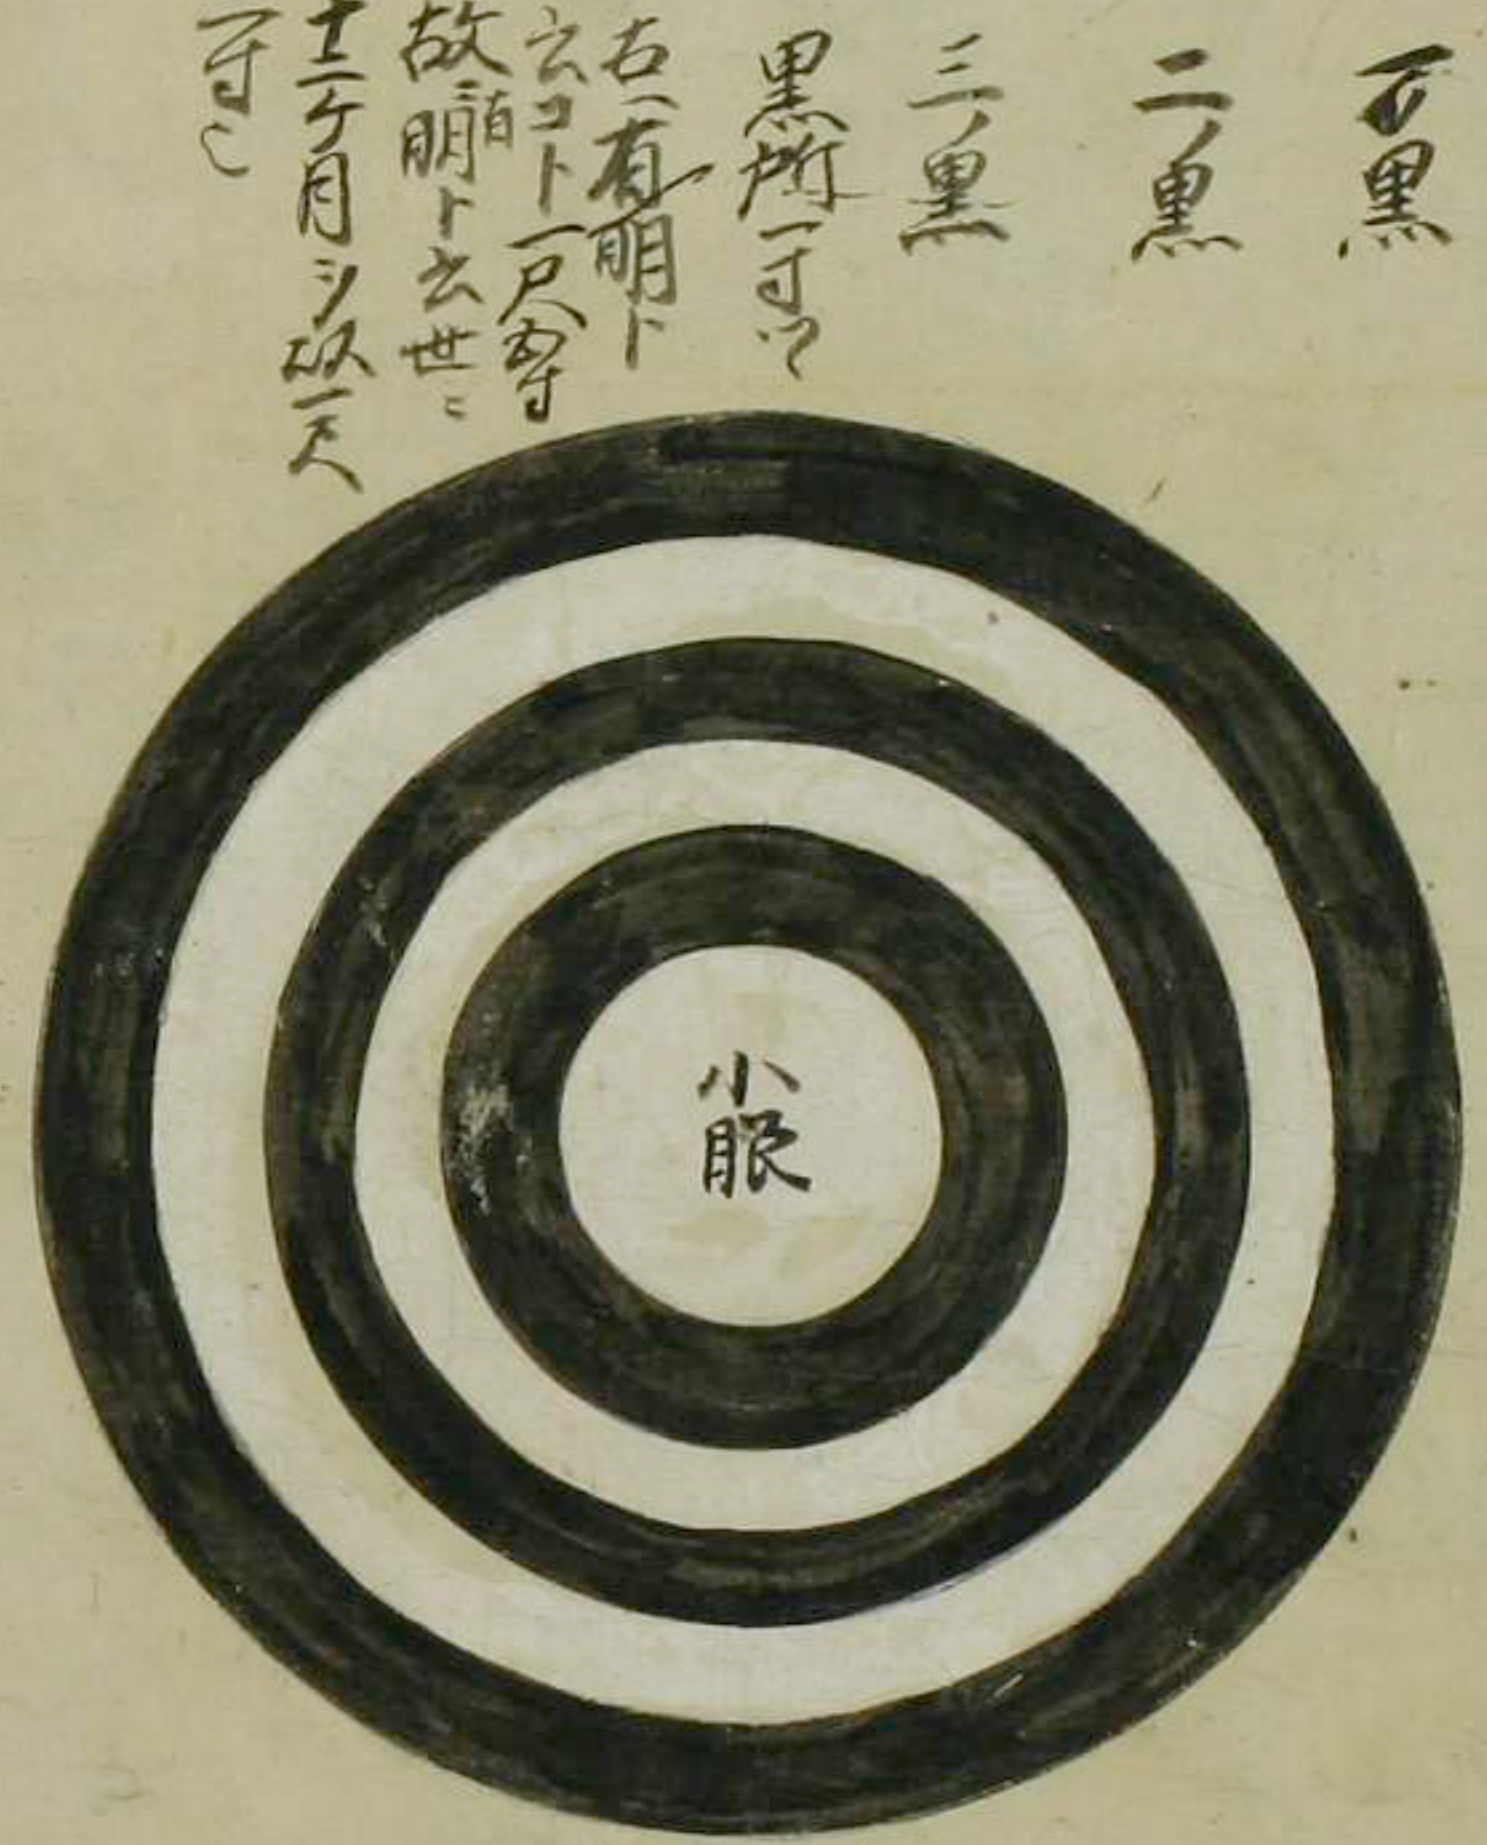 一ノ黒
二ノ黒
三ノ黒
黒所一寸ツヽ
右ハ有明ト
云コト一尺弐寸
故ニ明ト云世ニ
十二ケ月シ故一尺
一寸也
小眼